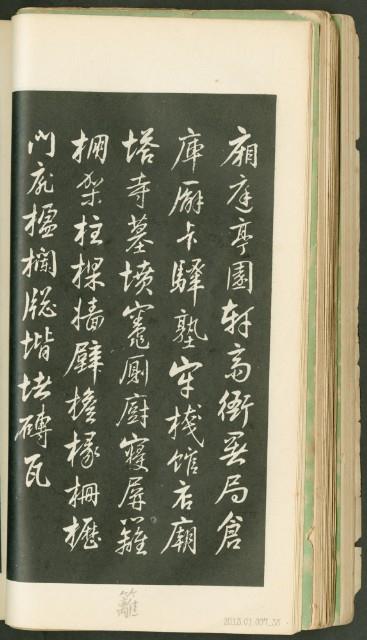 廂庭亭園軒高衙署局倉
庫廨卡驛塾牢棧館店廟
塔寺墓墳竈厠廚寢屏籬
棚架柱樑牆壁檐椽柵櫪
門扉楹欄牕堦坫磚瓦
籬
2013.01.007_35